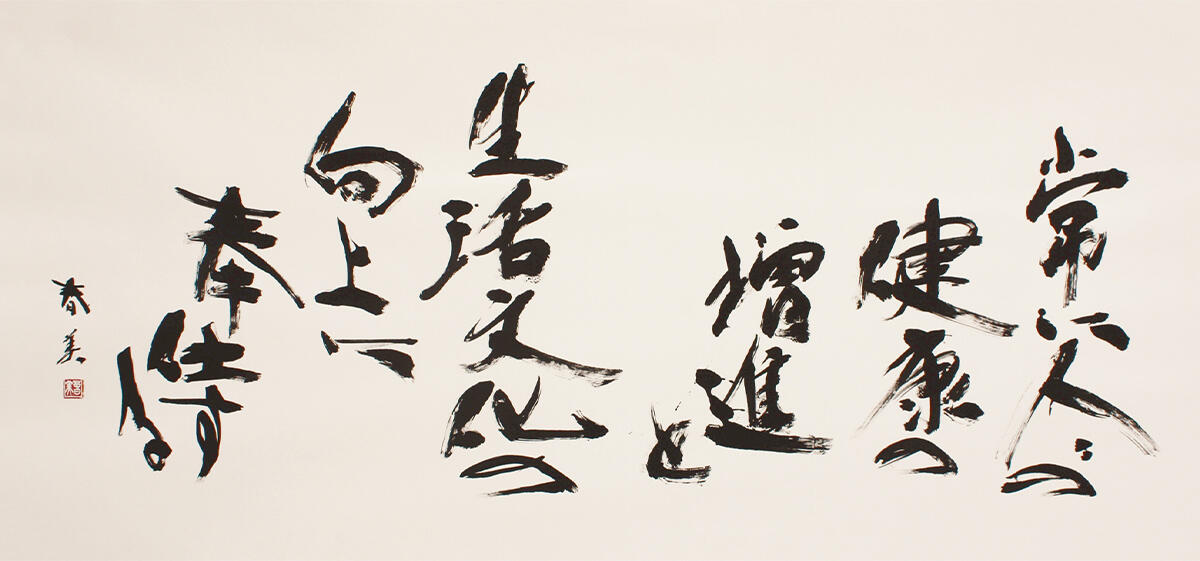 常に人々の
健康の
増進
と
生活文化の
向上に
奉仕す
る
春美